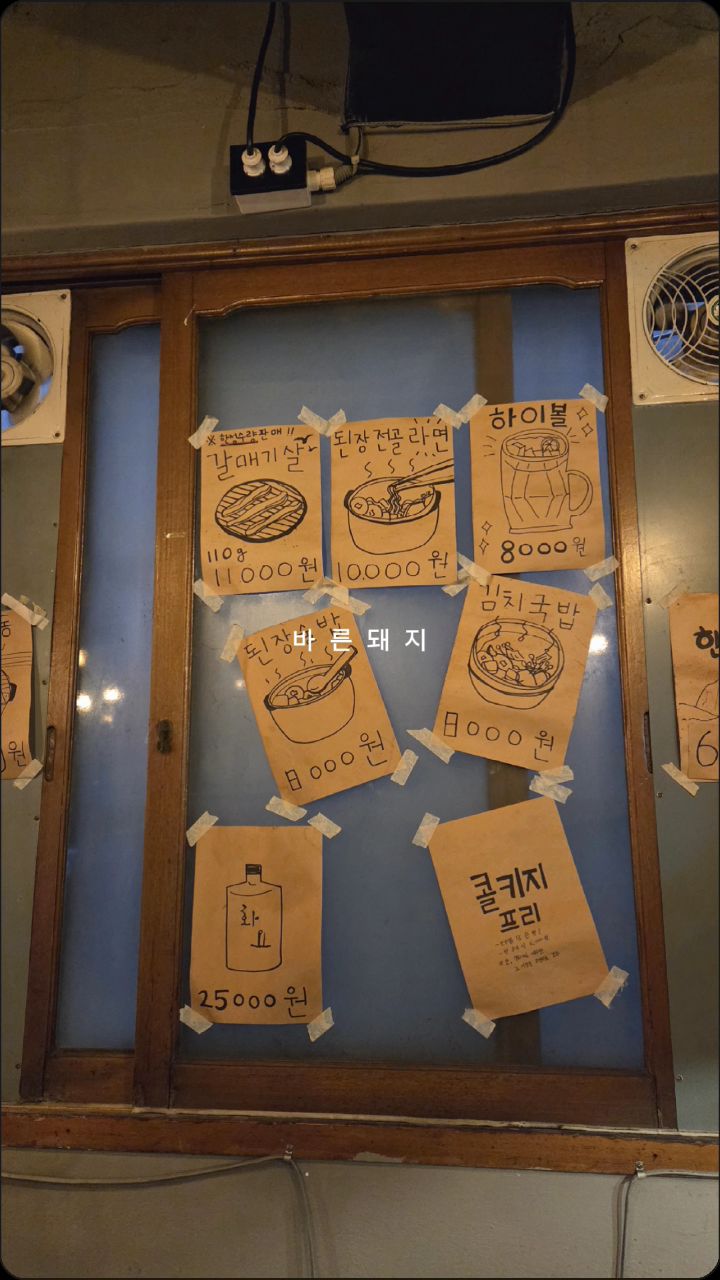 ※ 한정수량판매 !!
갈매기살
110g
11000원
된장전골라면
10.000원
하이볼
8000원
된장술밥
8000원
바른돼지
김치국밥
8000원
원
6
화요
25000원
콜키지
프리